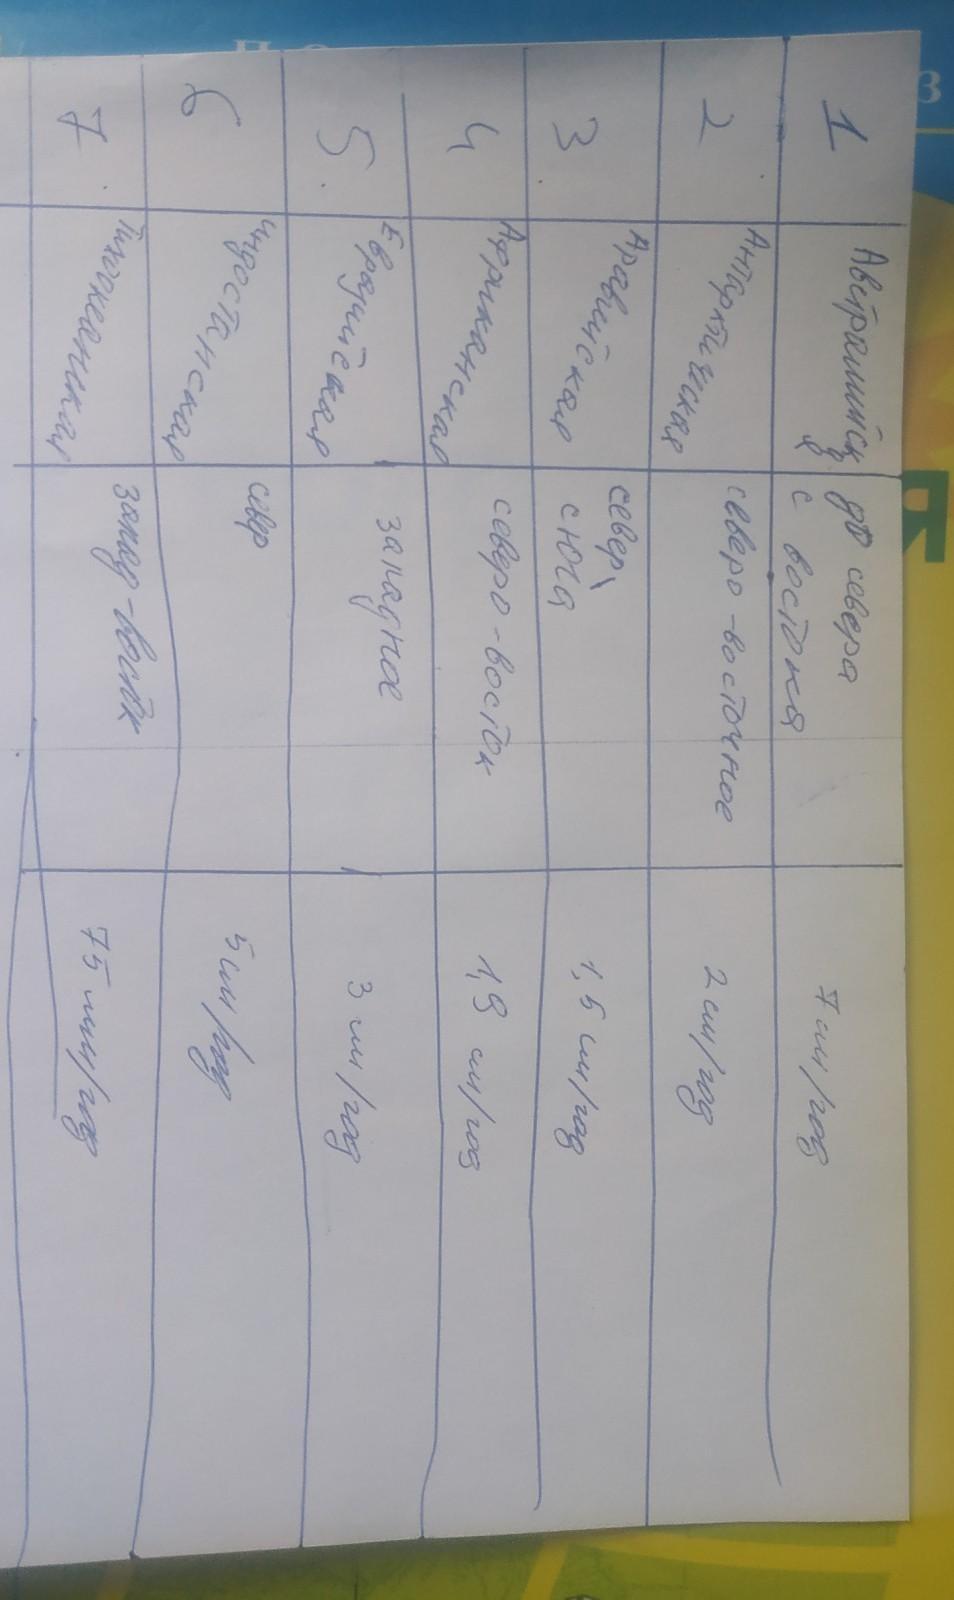 1
Австралийск
с севера
с востока
7 см/год
2
Антарктическая
северо-восточное
2 см/год
3
Аравийская
север,
с юга
1,5 см/год
4
Африканская
северо-восток
1,9 см/год
5.
Евразийская
западное
3 см/год
6
Индостанская
север
5 см/год
7
запад-восток
75 мм/год
Я